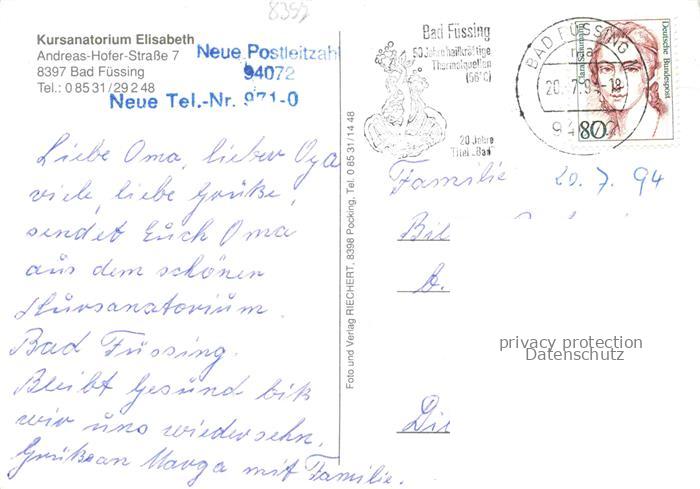 8397
Kursanatorium Elisabeth
Andreas-Hofer-Straße 7
8397 Bad Füssing
Tel.: 0 85 31/29 2 48
Neue Postleitzahl
94072
Neue Tel.-Nr. 971-0
Liebe Oma, lieber Opa
viele, liebe Grüße,
sendet Euch Oma
aus dem schönen
Kursanatorium.
Bad Füssing.
Bleibt Gesund bis
wir uns wiedersehn.
Grüße an Marga mit Familie.
Foto und Verlag RIECHERT, 8398 Pocking, Tel. 0 85 31/14 48
Bad Füssing
50 Jahre heilkräftige
Thermalquellen
(56°C)
20 Jahre
Titel „Bad“
BAD FÜSSING
20.-7.94-18
94072
Clara Schumann
Deutsche Bundespost
80
Familie 20. 7. 94
Bil
Die
privacy protection
Datenschutz